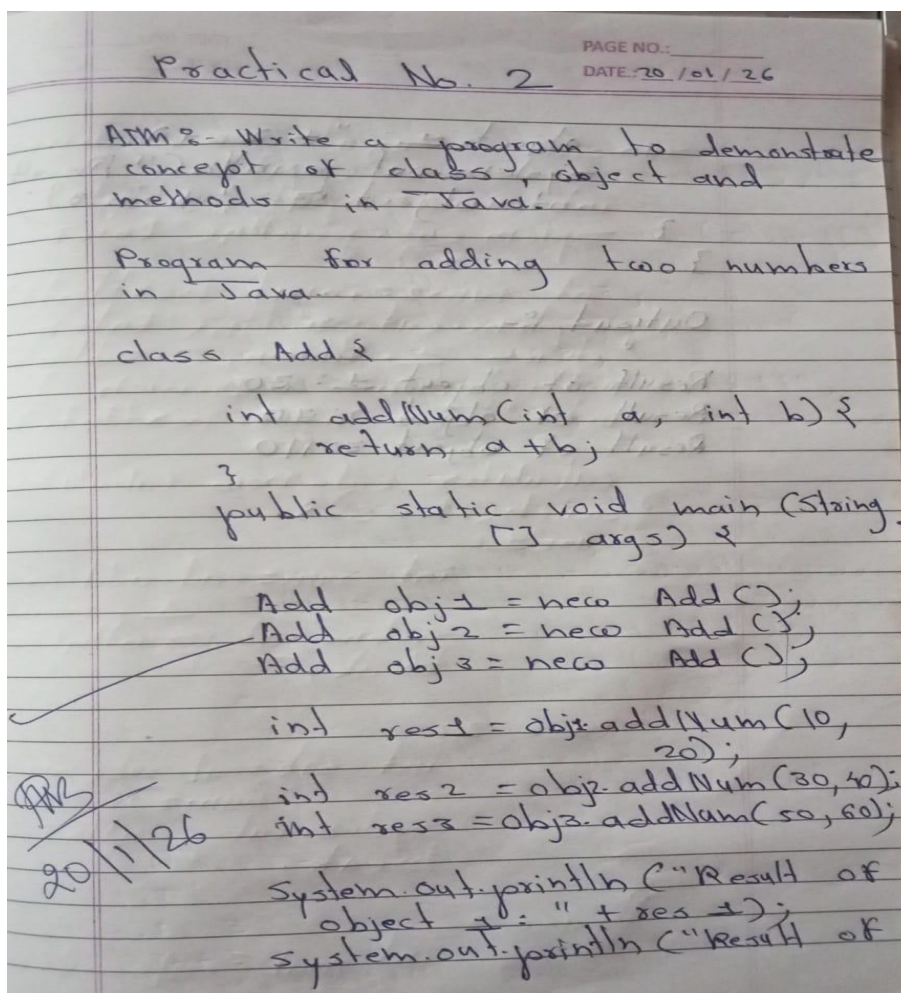 PAGE NO.:
Practical No. 2 DATE.: 20/01/26
Aim :- Write a program to demonstrate
concept of class, object and
methods in Java.
Program for adding two numbers
in Java
class Add {
int addNum(int a, int b) {
return a+b;
}
public static void main (String
[] args) {
Add obj1 = new Add();
Add obj2 = new Add();
Add obj3 = new Add();
int res1 = obj1.addNum(10,
20);
int res2 = obj2.addNum(30,40);
int res3 = obj3.addNum(50,60);
20/1/26
System.out.println("Result of
object 1: " + res1);
System.out.println("Result of